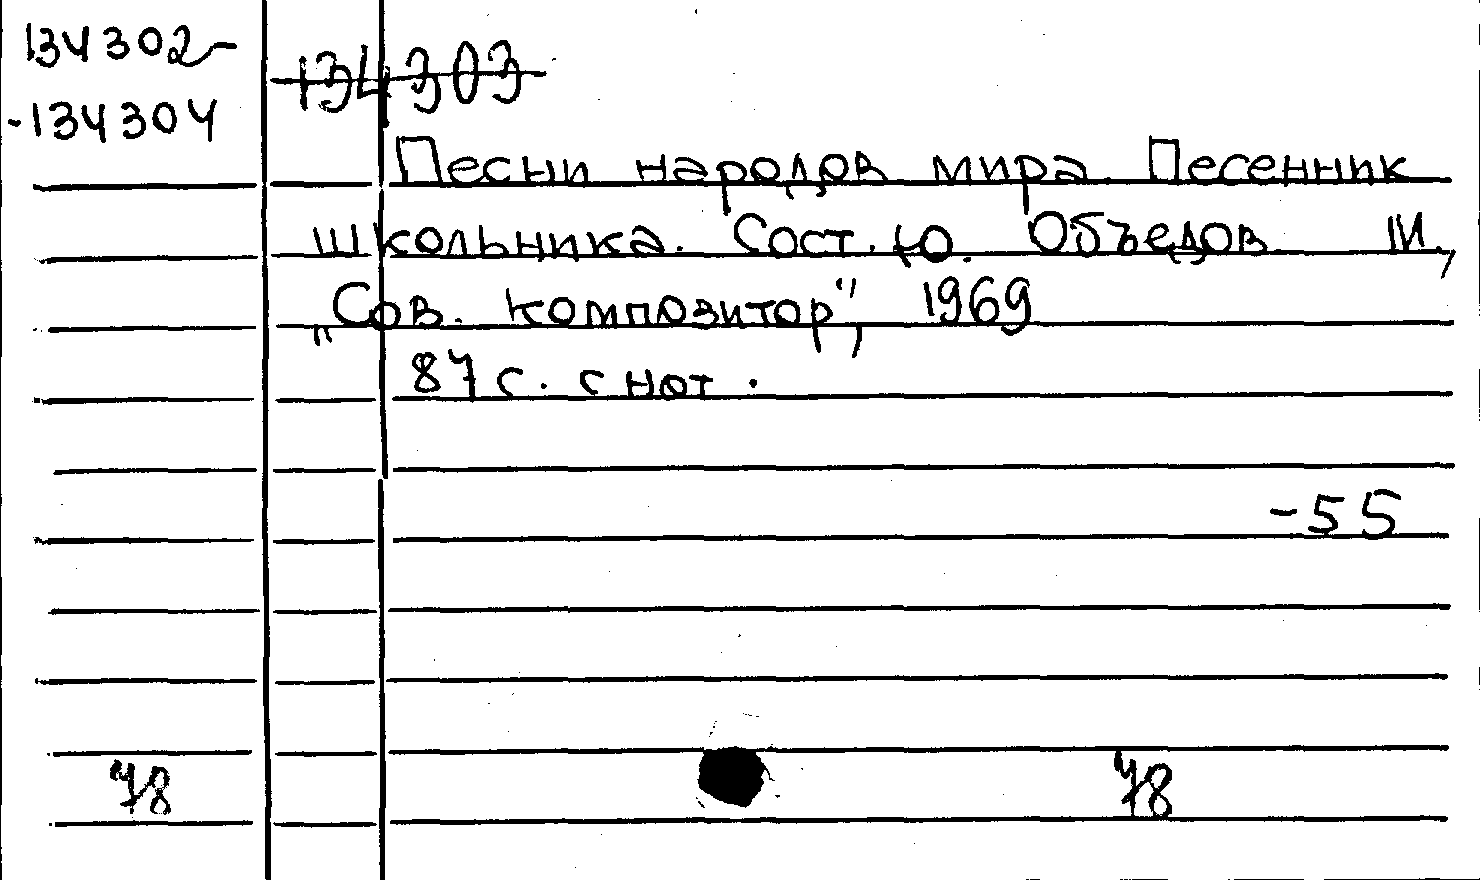 134302-
-134304
134303
Песни народов мира. Песенник
школьника. Сост. Ю. Объедов. М.,
„Сов. композитор", 1969
87 с. с нот.
-55
78
78